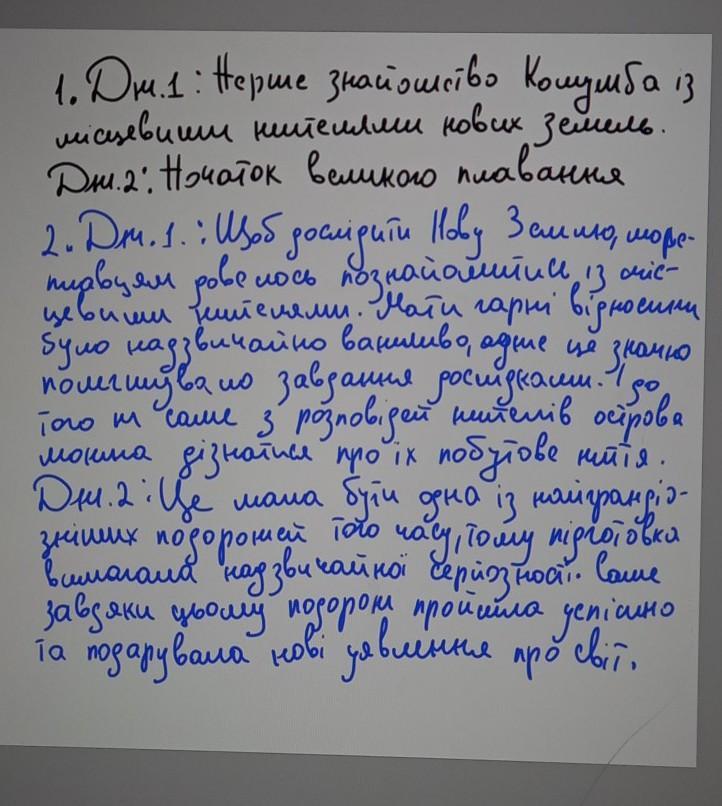 1. Дж.1: Перше знайомство Колумба із
місцевими жителями нових земель.
Дж.2: Початок великого плавання
2. Дж.1.: Щоб дослідити Нову Землю, море-
плавцям довелось познайомитись із міс-
цевими жителями. Мати гарні відносини
було надзвичайно важливо, адже це значно
полегшувало завдання дослідками. І до
того ж саме з розповідей жителів острова
можна дізнатися про їх побутове життя.
Дж.2: Це мала бути одна із найграндіо-
зніших подорожей того часу, тому підготовка
вимагала надзвичайної серйозності. Саме
завдяки цьому подорож пройшла успішно
та подарувала нові уявлення про світ.